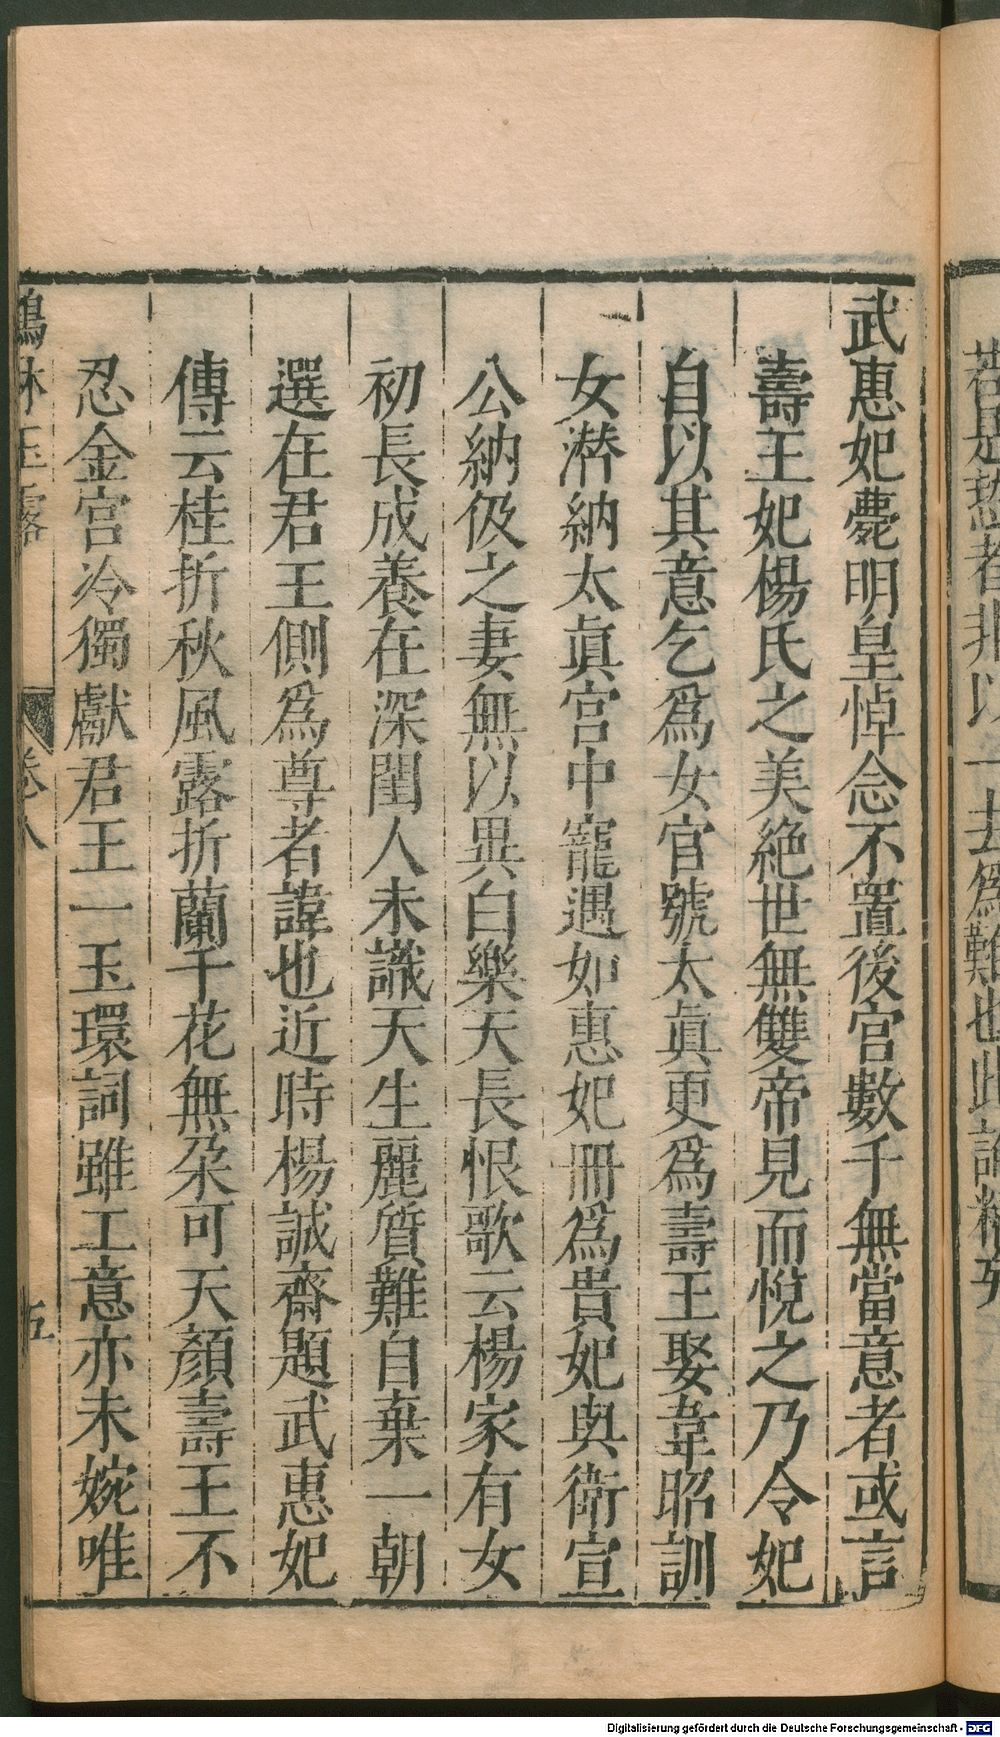 武惠妃薨明皇悼念不置後宮數千無當意者或言
壽王妃楊氏之美絶世無雙帝見而悅之乃令妃
自以其意乞爲女官號太眞更爲壽王娶韋昭訓
女潜納太眞宮中寵遇如惠妃冊爲貴妃與衛宣
公納伋之妻無以異白樂天長恨歌云楊家有女
初長成養在深閨人未識天生麗質難自棄一朝
選在君王側爲尊者諱也近時楊誠齋題武惠妃
傳云桂折秋風露折蘭千花無朶可天顏壽王不
忍金宮冷獨獻君王一玉環詞雖工意亦未婉唯
鶴林玉露
卷八
五
若是愁者非以一去爲難也此論精
Digitalisierung gefördert durch die Deutsche Forschungsgemeinschaft - DFG